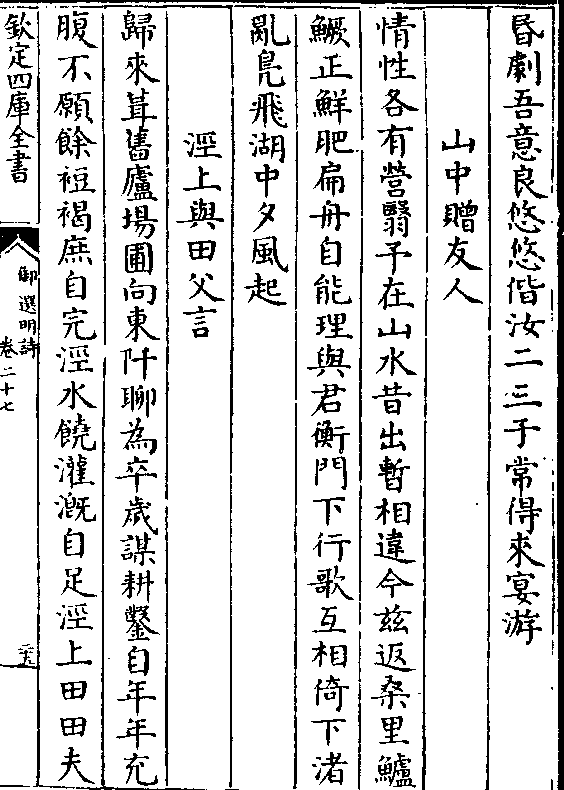 昏劇吾意良悠悠偕汝二三子常得來宴游
山中贈友人
情性各有營翳予在山水昔出暫相違今兹返桑里鱸
鱖正鮮肥扁舟自能理與君衡門下行歌互相倚下渚
亂鳧飛湖中夕風起
涇上與田父言
歸來葺舊廬場圃向東阡聊為卒歲謀耕鑿自年年充
腹不願餘裋褐庶自完涇水饒灌溉自足涇上田田夫
欽定四庫全書
御選明詩
卷二十七